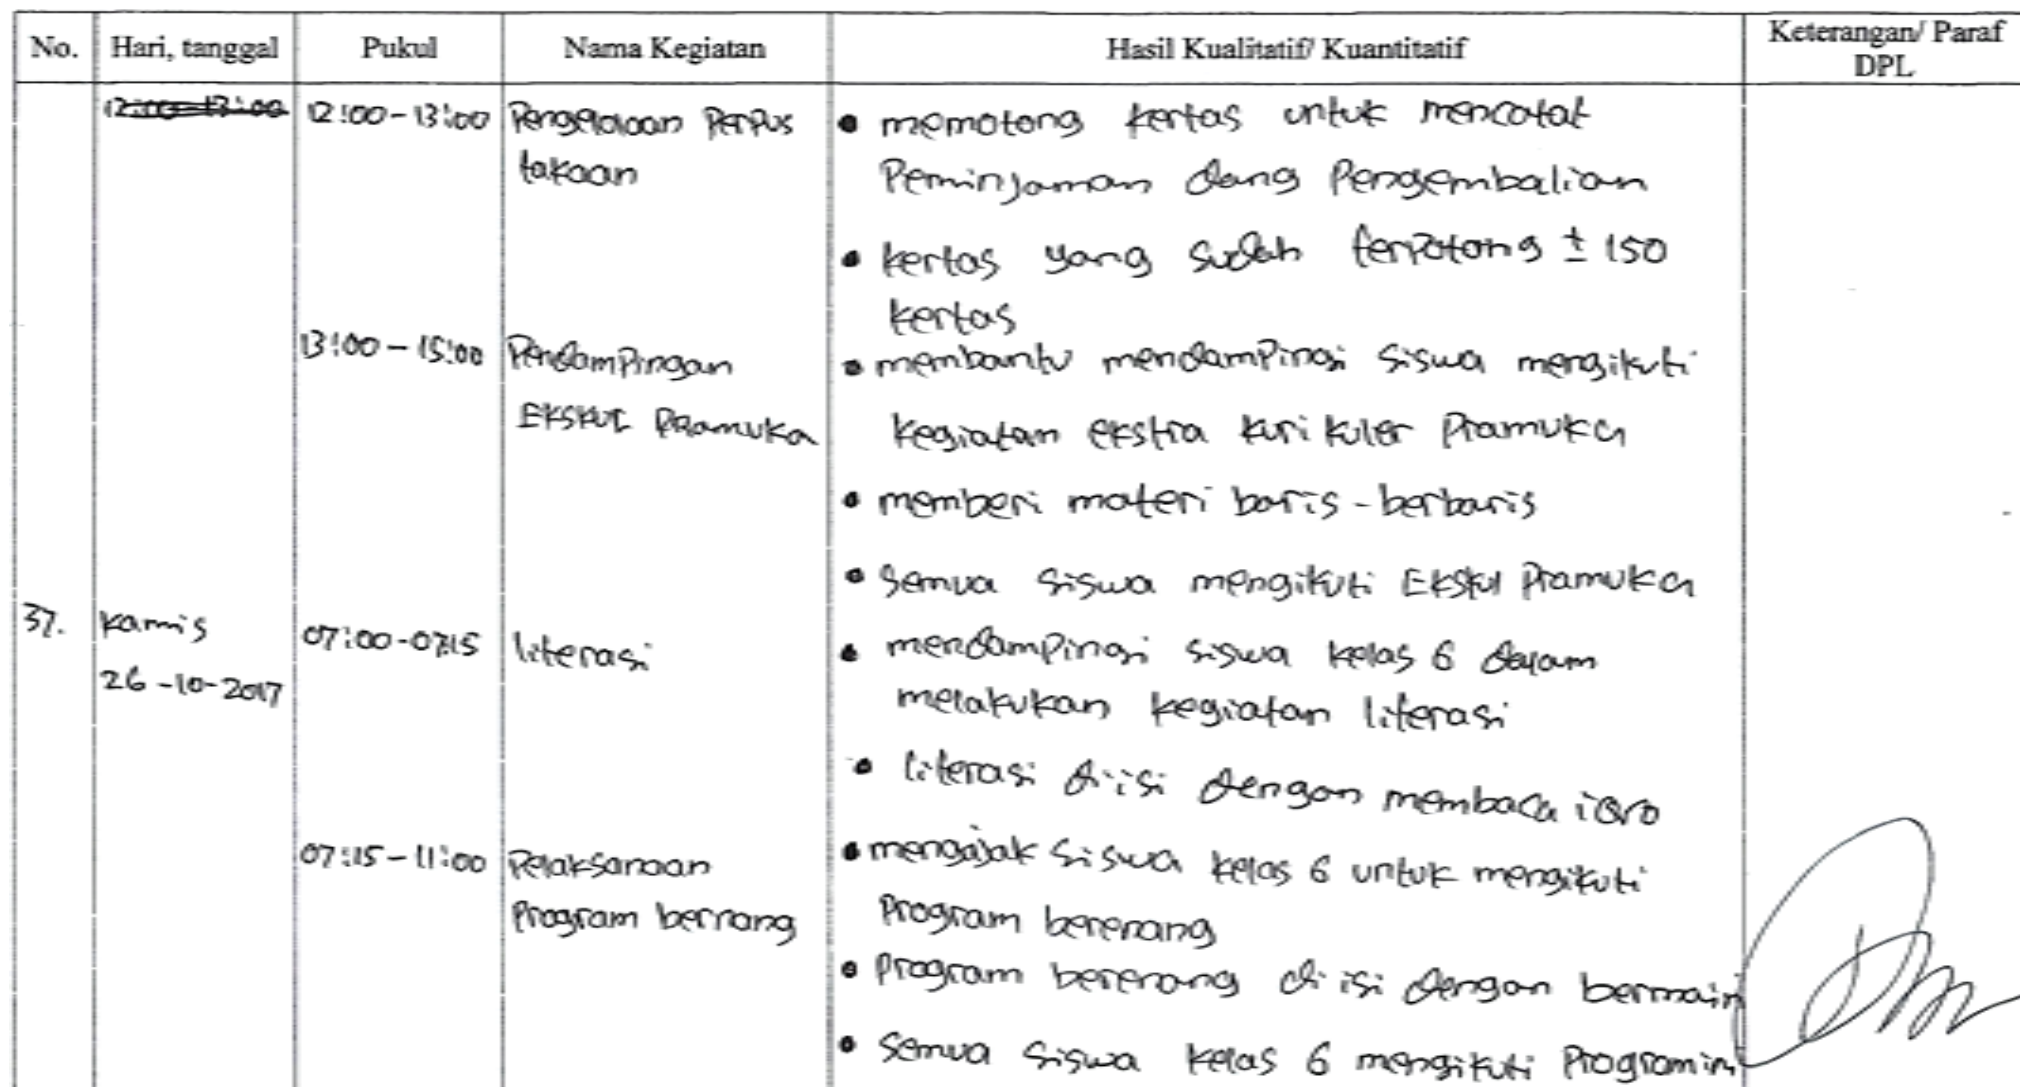 No. Hari, tanggal Pukul Nama Kegiatan Hasil Kualitatif/ Kuantitatif Keterangan/ Paraf
DPL
12:00-13:00 12:00-13:00 Pengelolaan Perpus • memotong kertas untuk mencatat
takaan Peminjaman dang Pengembalian
• kertas yang sudah terpotong ± 150
kertas
13:00-15:00 Pendampingan • membantu mendampingi siswa mengikuti
Ekskul Pramuka kegiatan ekstra kurikuler Pramuka
• memberi materi baris-berbaris
• semua siswa mengikuti Ekskul Pramuka
37. Kamis 07:00-07:15 literasi • mendampingi siswa kelas 6 dalam
26-10-2017 melakukan kegiatan literasi
• literasi diisi dengan membaca iqro
07:15-11:00 Pelaksanaan • mengajak siswa kelas 6 untuk mengikuti
Program bernang Program berenang
• Program berenang di isi dengan bermain
• semua siswa kelas 6 mengikuti Program in